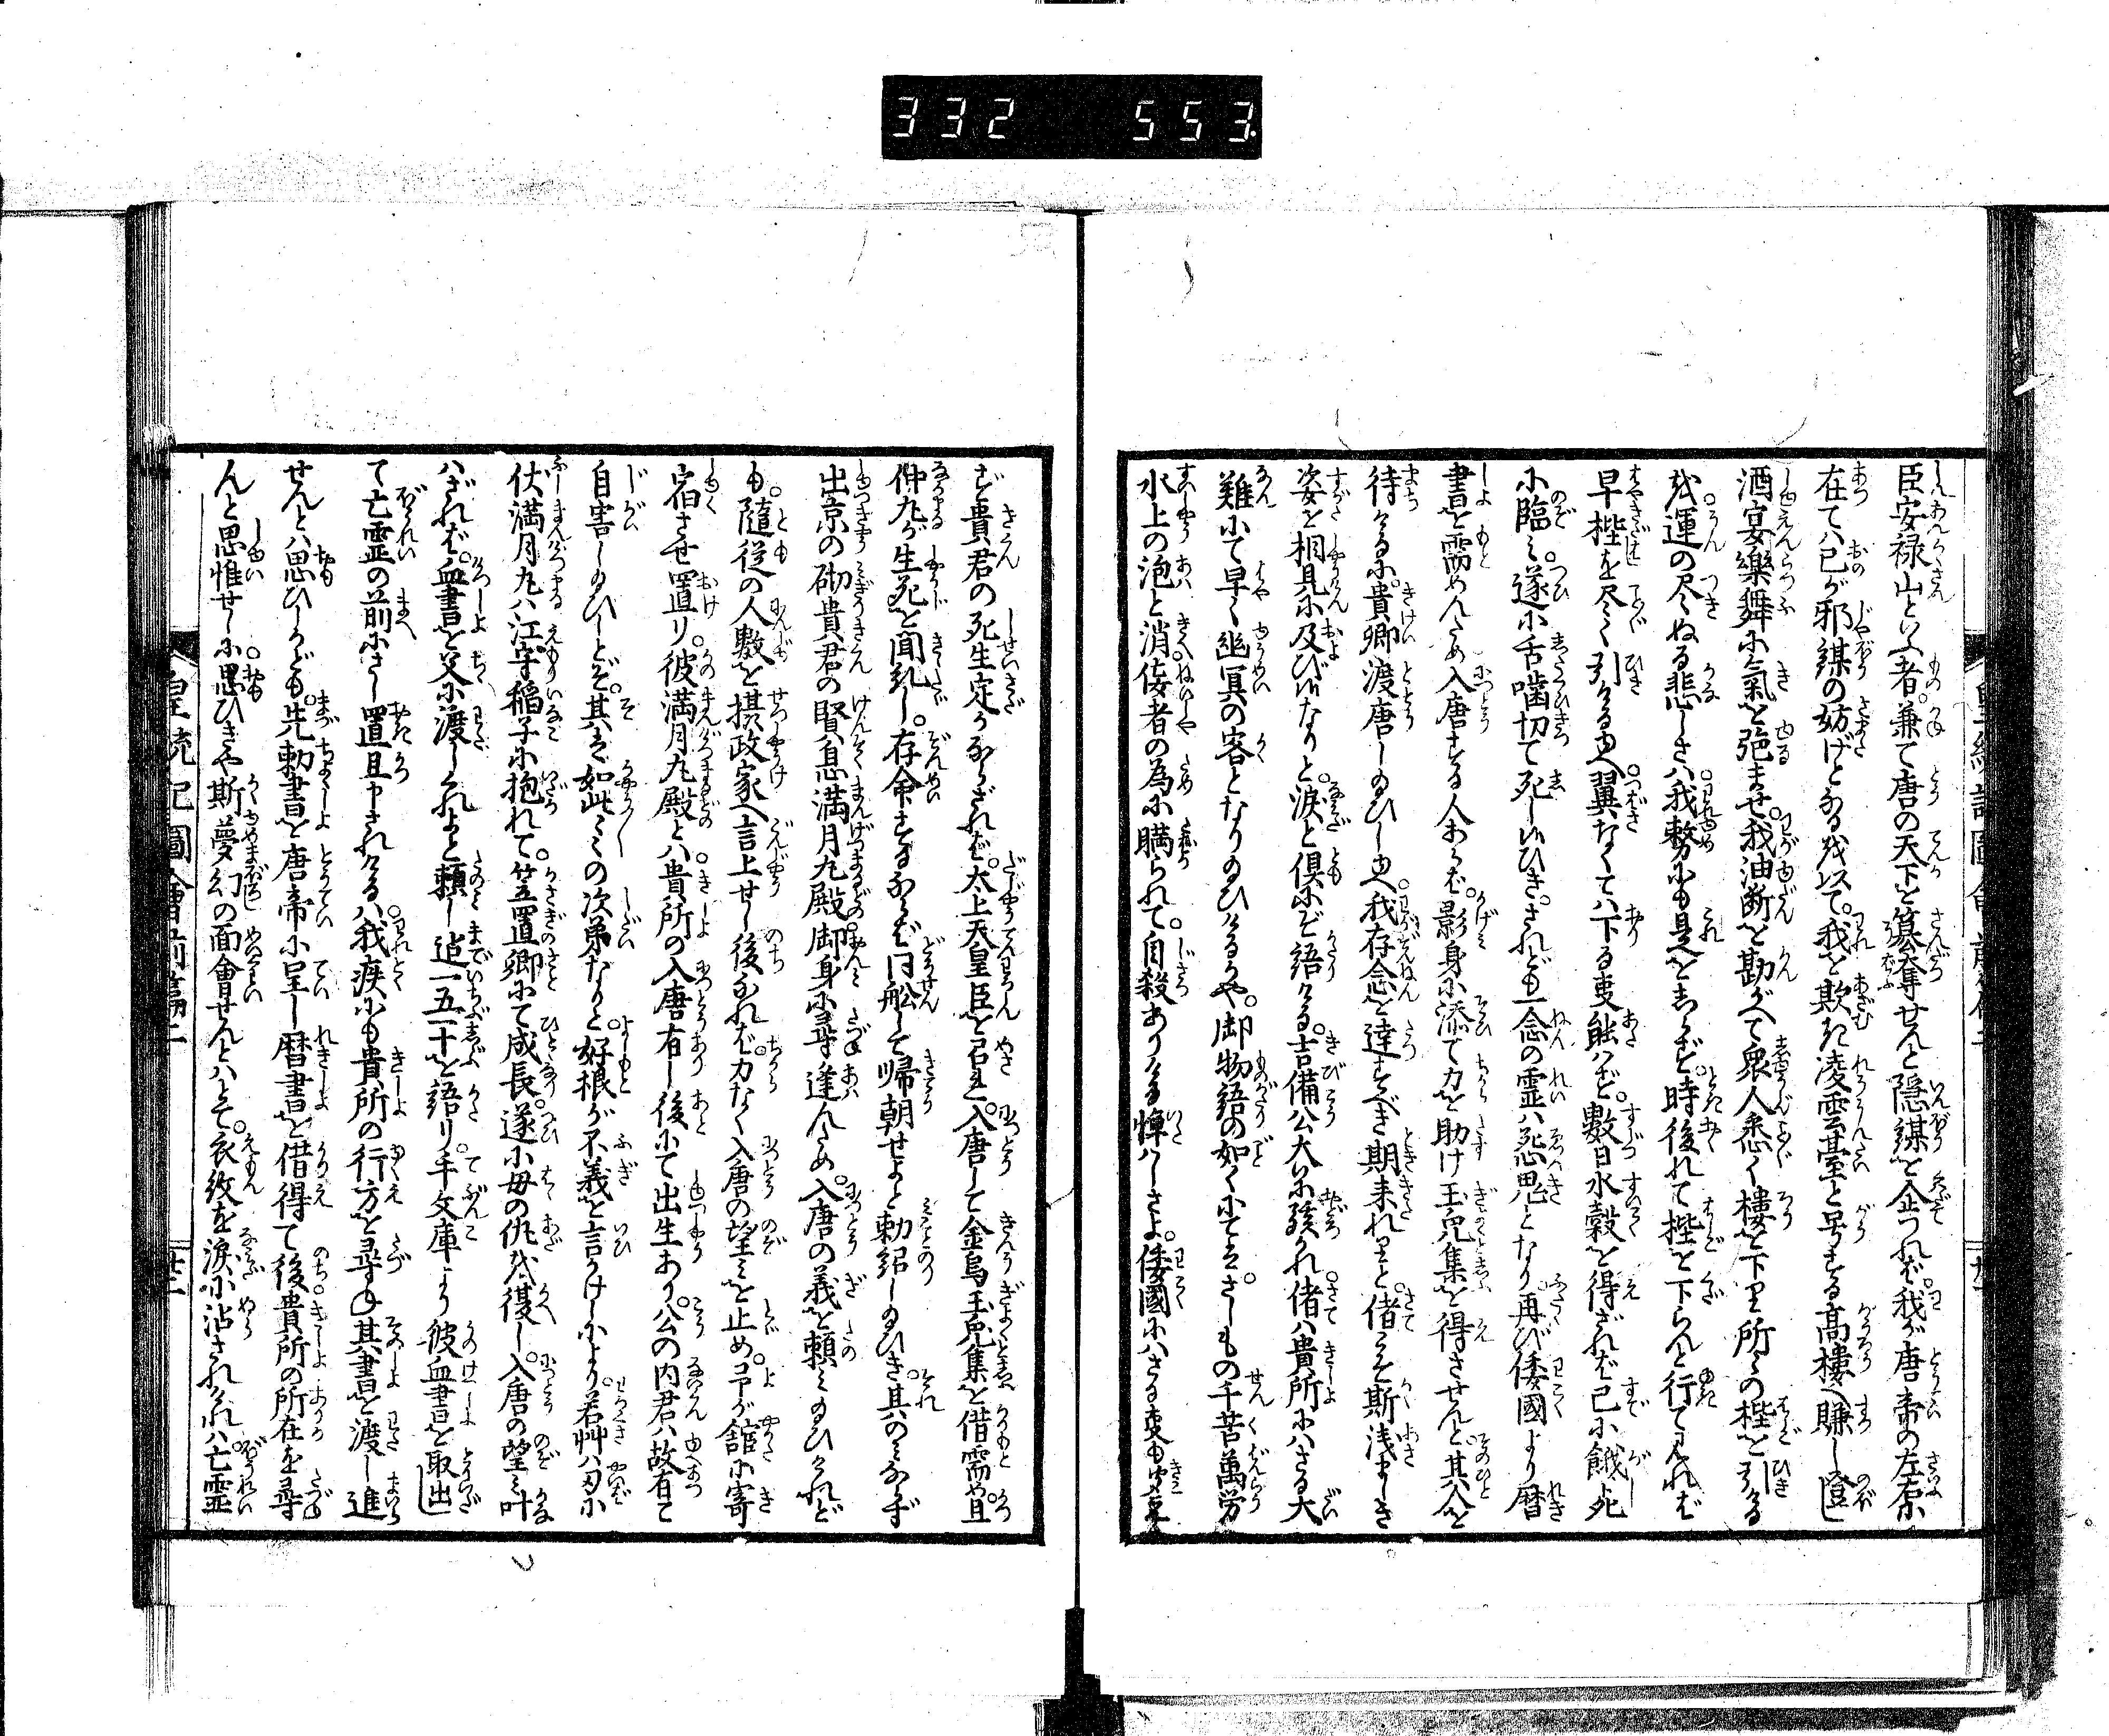 332 553
臣安禄山といふ者。兼て唐の天下を簒奪せんと隠謀を企つれば。我が唐帝の左右
在てハ己が邪謀の妨げとなるを以て。我を欺き凌雲臺と号する高樓へ賺し登し
酒宴樂舞に氣を弛ませ。我油断を勘がへて衆人悉く樓を下り所〻の梯を引ける
我運の尽ぬる悲しさハ我勢にも是をしらず。時後れて梯を下らんと行て見れば
早梯を尽く引ける也。翼なくてハ下る事能ハず。數日水穀を得ざれば已に餓死
に臨み。遂に舌噛切て死し侍ひき。されども一念の霊ハ悪鬼となり。再び倭國より暦
書を需めんため入唐する人あらば。影身に添て力を助け玉兎集を得させんと。其人を
待ける に。貴卿渡唐し給ひし也。我存念を達すべき期来れりと。偖こそ斯浅ましき
姿を相見に及び侍なりと。涙と倶にぞ語ける。吉備公大に駭かれ偖ハ貴所にハさる大
難にて早く幽冥の客となり給ひけるかや。御物語の如くにては。さしもの千苦萬労
水上の泡と消佞者の為に瞞られて。自殺ありける悼ハしさよ。倭國にハさる変も聞え
ず貴君の死生定かならざれば。太上天皇臣を召れ。入唐して金烏玉兎集を借需や。且
仲丸が生死を聞糺し。存命するならバ同舩して帰朝せよと勅詔し給ひき。其ハのみならず
出京の砌貴君の賢息満月丸殿。御身に尋逢んため。入唐の義を頼み給ひけれど
も。隨従の人數を摂政家へ言上せし後なれば。力なく入唐の望みを止め。予が舘に寄
宿させ置り。彼満月丸殿とハ貴所の入唐有し後にて出生あり。公の内君ハ故有て
自害し給ひしとぞ。其は如此〻〻の次第なりと。好根が不義を言かけしより。若艸ハ刃に
伏満月丸ハ江守稲子に抱れて。笠置卿にて成長。遂に母の仇を復し。入唐の望み叶
ハざれば。血書を父に渡しくれよと頼し迄一五一十を語り。手文庫より彼血書を取出し
て亡霊の前にさし置且申されけるハ。我疾にも貴所の行方を尋ね其書を渡し進
せんとハ思ひしかども。先勅書を唐帝に呈し暦書を借得て後貴所の所在を尋
んと思惟せしに。思ひきや斯夢幻の面會せんとハとて。衣紋を涙に沾されければ。亡霊
皇統記圖會前篇二
廿一